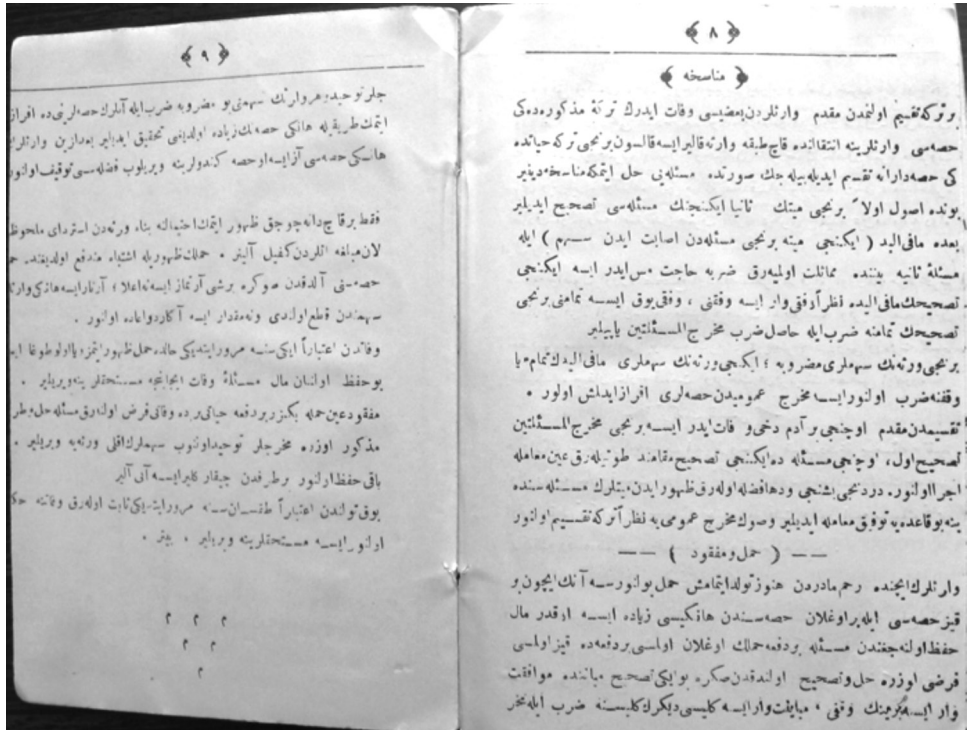 ﴾ ٨ ﴿
﴾ مناسخه ﴿
بر تركه تقسیم اولنمدن مقدم وارثلردن بعضیسی وفات ایدرك تركۀ مذكوره ده كی
حصه سی وارثلرینه انتقالنده قاچ طبقه وارثه قالیر ایسه قالسون برنجی تركه حیاتده
كی حصه دارانه تقسیم ایدیله بیله جك صورتده مسئله یی حل ایتمكه مناسخه دینیر
بونده اصول اولا برنجی میتك ثانیا ایكنجینك مسئله سی تصحیح ایدیلیر
بعده مافی الید ( ایكنجی میته برنجی مسئله دن اصابت ایدن سهم ) ایله
مسئلۀ ثانیه بیننده مماثلت اولمیه رق ضربه حاجت مس ایدر ایسه ایكنجی
تصحیحك مافی الیده نظراً وفقی وار ایسه وفقنی ، وفقی یوق ایسه تمامنی برنجی
تصحیحك تمامنه ضرب ایله حاصل ضرب مخرج المسئلتین یاپیلیر
برنجی ورثه نك سهملری مضروبه ؛ ایكنجی ورثه نك سهملری مافی الیدك تمامنه یا
وفقنه ضرب اولنور ایسه مخرج عمومیدن حصه لری افراز ایدلمش اولور .
تقسیمدن مقدم اوچنجی بر آدم دخی وفات ایدر ایسه برنجی مخرج المسئلتین
تصحیح اول، اوچنجی مسئله ده ایكنجی تصحیح مقامنه طوتیله رق عین معامله
اجرا اولنور. دردنجی بشنجی ودها فضله اوله رق ظهور ایدن میتلرك مسئله سنده
ینه بو قاعده یه توفیق معامله ایدیلیر وصوك مخرج عمومی یه نظراً تركه تقسیم اولنور
—— ( حمل ومفقود ) ——
وارثلرك ایچنده رحم مادردن هنوز تولد ایتمامش حمل بولنورسه آنك ایچون بر
قیز حصه سی ایله بر اوغلان حصه سندن هانكیسی زیاده ایسه اوقدر مال
حفظ اولنه جغندن مسئله بر دفعه حملك اوغلان اولسی بر دفعه ده قیز اولسی
فرضی اوزره حل وتصحیح اولندقدن صكره بو ایكی تصحیح میاننده موافقت
وار ایسه برینك وفقی ، مباینت وار ایسه كلیسی دیكرك كلیسنه ضرب ایله مخر
﴾ ٩ ﴿
جلر توحید وهر وارثك سهمنی بو مضروبه ضرب ایله آنلرك حصه لرینی ده افراز
ایتمك طریقیله هانكی حصه نك زیاده اولدیغنی تحقیق ایدیلیر بعده وارثلرك
هانكی حصه سی آز ایسه او حصه كندولرینه ویریلوب فضله سی توقیف اولنور
فقط بر قاچ دانه چوجق ظهور ایتمك احتمالنه بناء ورثه دن استردادی ملحوظ
لان مبلغه آنلردن كفیل آلینیر . حملك ظهوریله اشتباه مندفع اولدیغنده
حصه سنی آلدقدن صوكره برشی آرتماز ایسه نه اعلا ؛ آرتار ایسه هانكی
سهمندن قطع اولندی ونه مقدار ایسه آكا رد واعاده اولنور .
وفاتدن اعتباراً ایكی سنه مرور ایتدیكی حالده حمل ظهور ایتمز یا اولو طوغار
بو حفظ اولنان مال مسئلۀ وفات ایجابنجه مستحقلرینه ویریلیر .
مفقود عین حمله بكزر بر دفعه حیاتی بر ده وفاتی فرض اوله رق مسئله حل وطر
مذكور اوزره مخرجلر توحید اولنوب سهملرك اقلی ورثه یه ویریلیر .
باقی حفظ اولنور بر طرفدن چیقار كلیر ایسه آنی آلیر
یوق تولدن اعتباراً طقسان سنه مرور ایتدیكی ثابت اوله رق وفاتنه
اولنور ایسه مستحقلرینه ویریلیر . بیتر .
م م م
م م
م